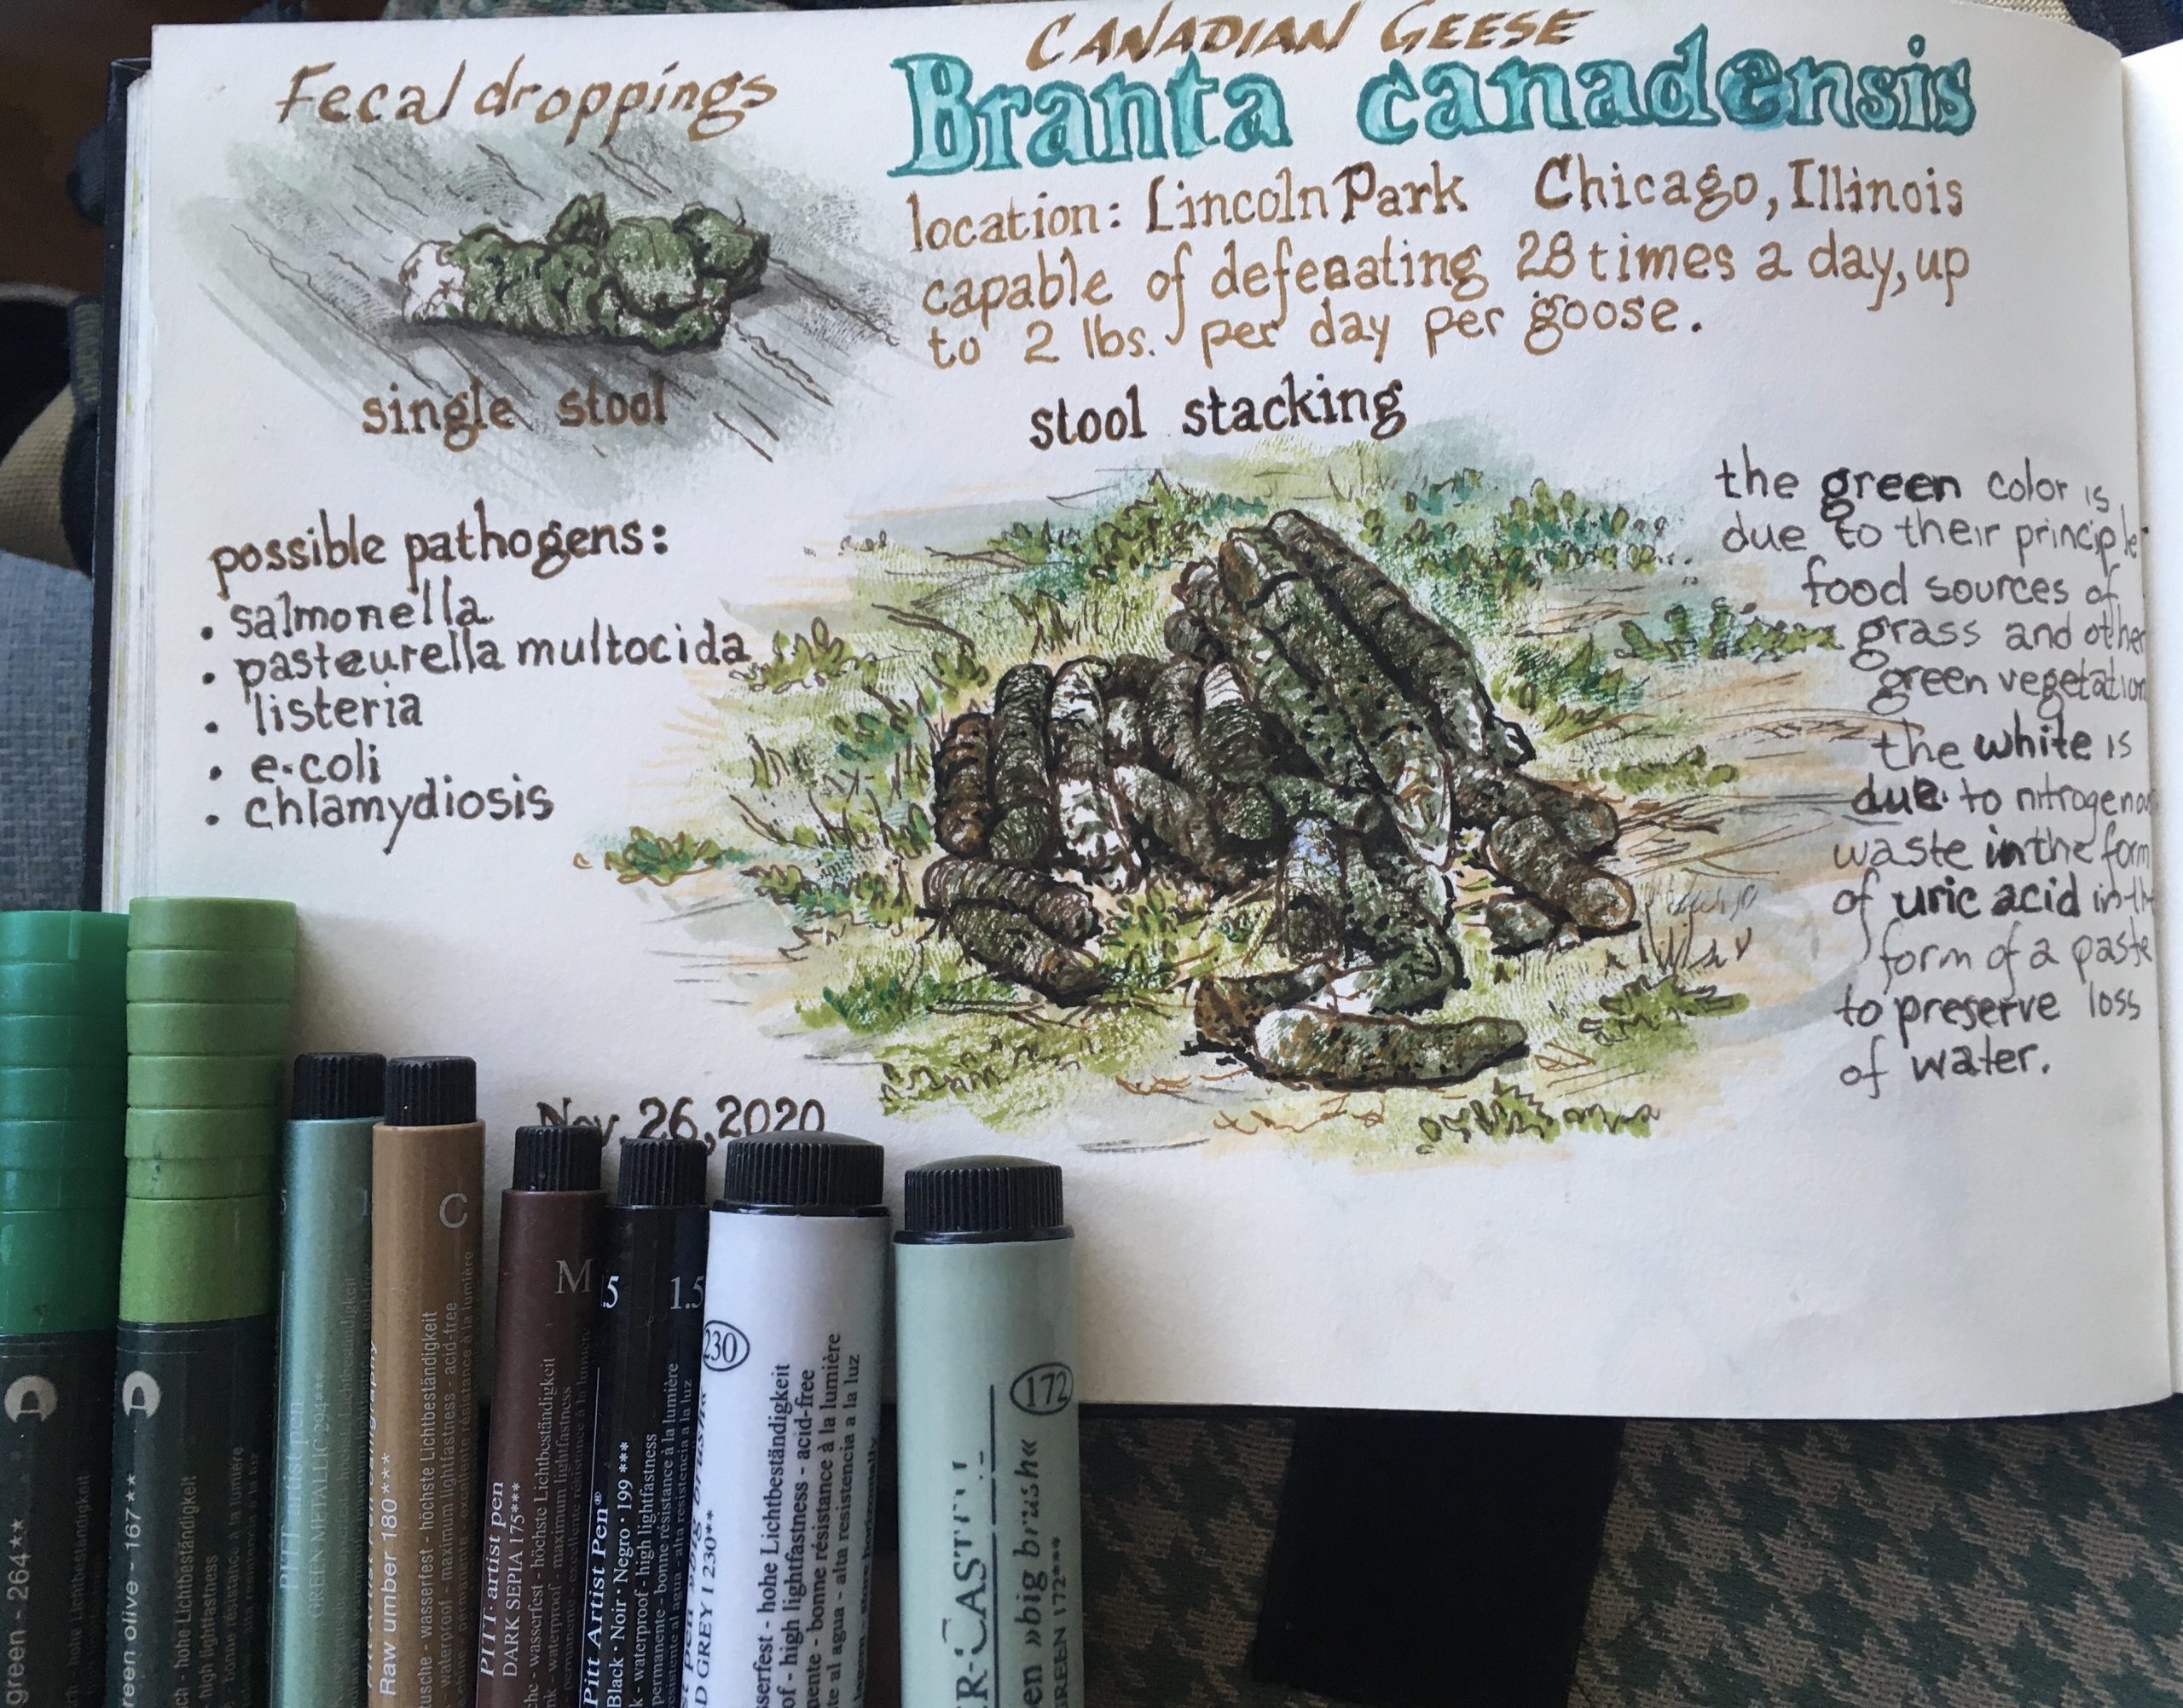 CANADIAN GEESE
Fecal droppings
Branta canadensis
location: Lincoln Park Chicago, Illinois
capable of defecating 28 times a day, up
to 2 lbs. per day per goose.
single stool
stool stacking
possible pathogens:
• salmonella
• pasteurella multocida
• listeria
• e.coli
• chlamydiosis
the green color is
due to their principle
food sources of
grass and other
green vegetation
the white is
due to
waste in the form
of uric acid in
form of a paste
to preserve loss
of water.
Nov. 26, 2020
green - 264**
green olive - 167**
PITT artist pen
GREEN METALLIC 294***
C
Raw umber 180***
wasserfest - höchste Lichtbeständigkeit
waterproof - maximum lightfastness - acid-free
M
PITT artist pen
DARK SEPIA 175***
wasserfest - höchste Lichtbeständigkeit
waterproof - maximum lightfastness
5
1.5
Pitt Artist Pen®
Black • Noir • Negro • 199 ***
waterproof - high lightfastness
permanente - bonne résistance à la lumière
resistente al agua - alta resistencia a la luz
230
GREY I 230**
hohe Lichtbeständigkeit
high lightfastness - acid-free
bonne résistance à la lumière
al agua - alta resistencia a la luz
172
»big brush«
GREEN 172***